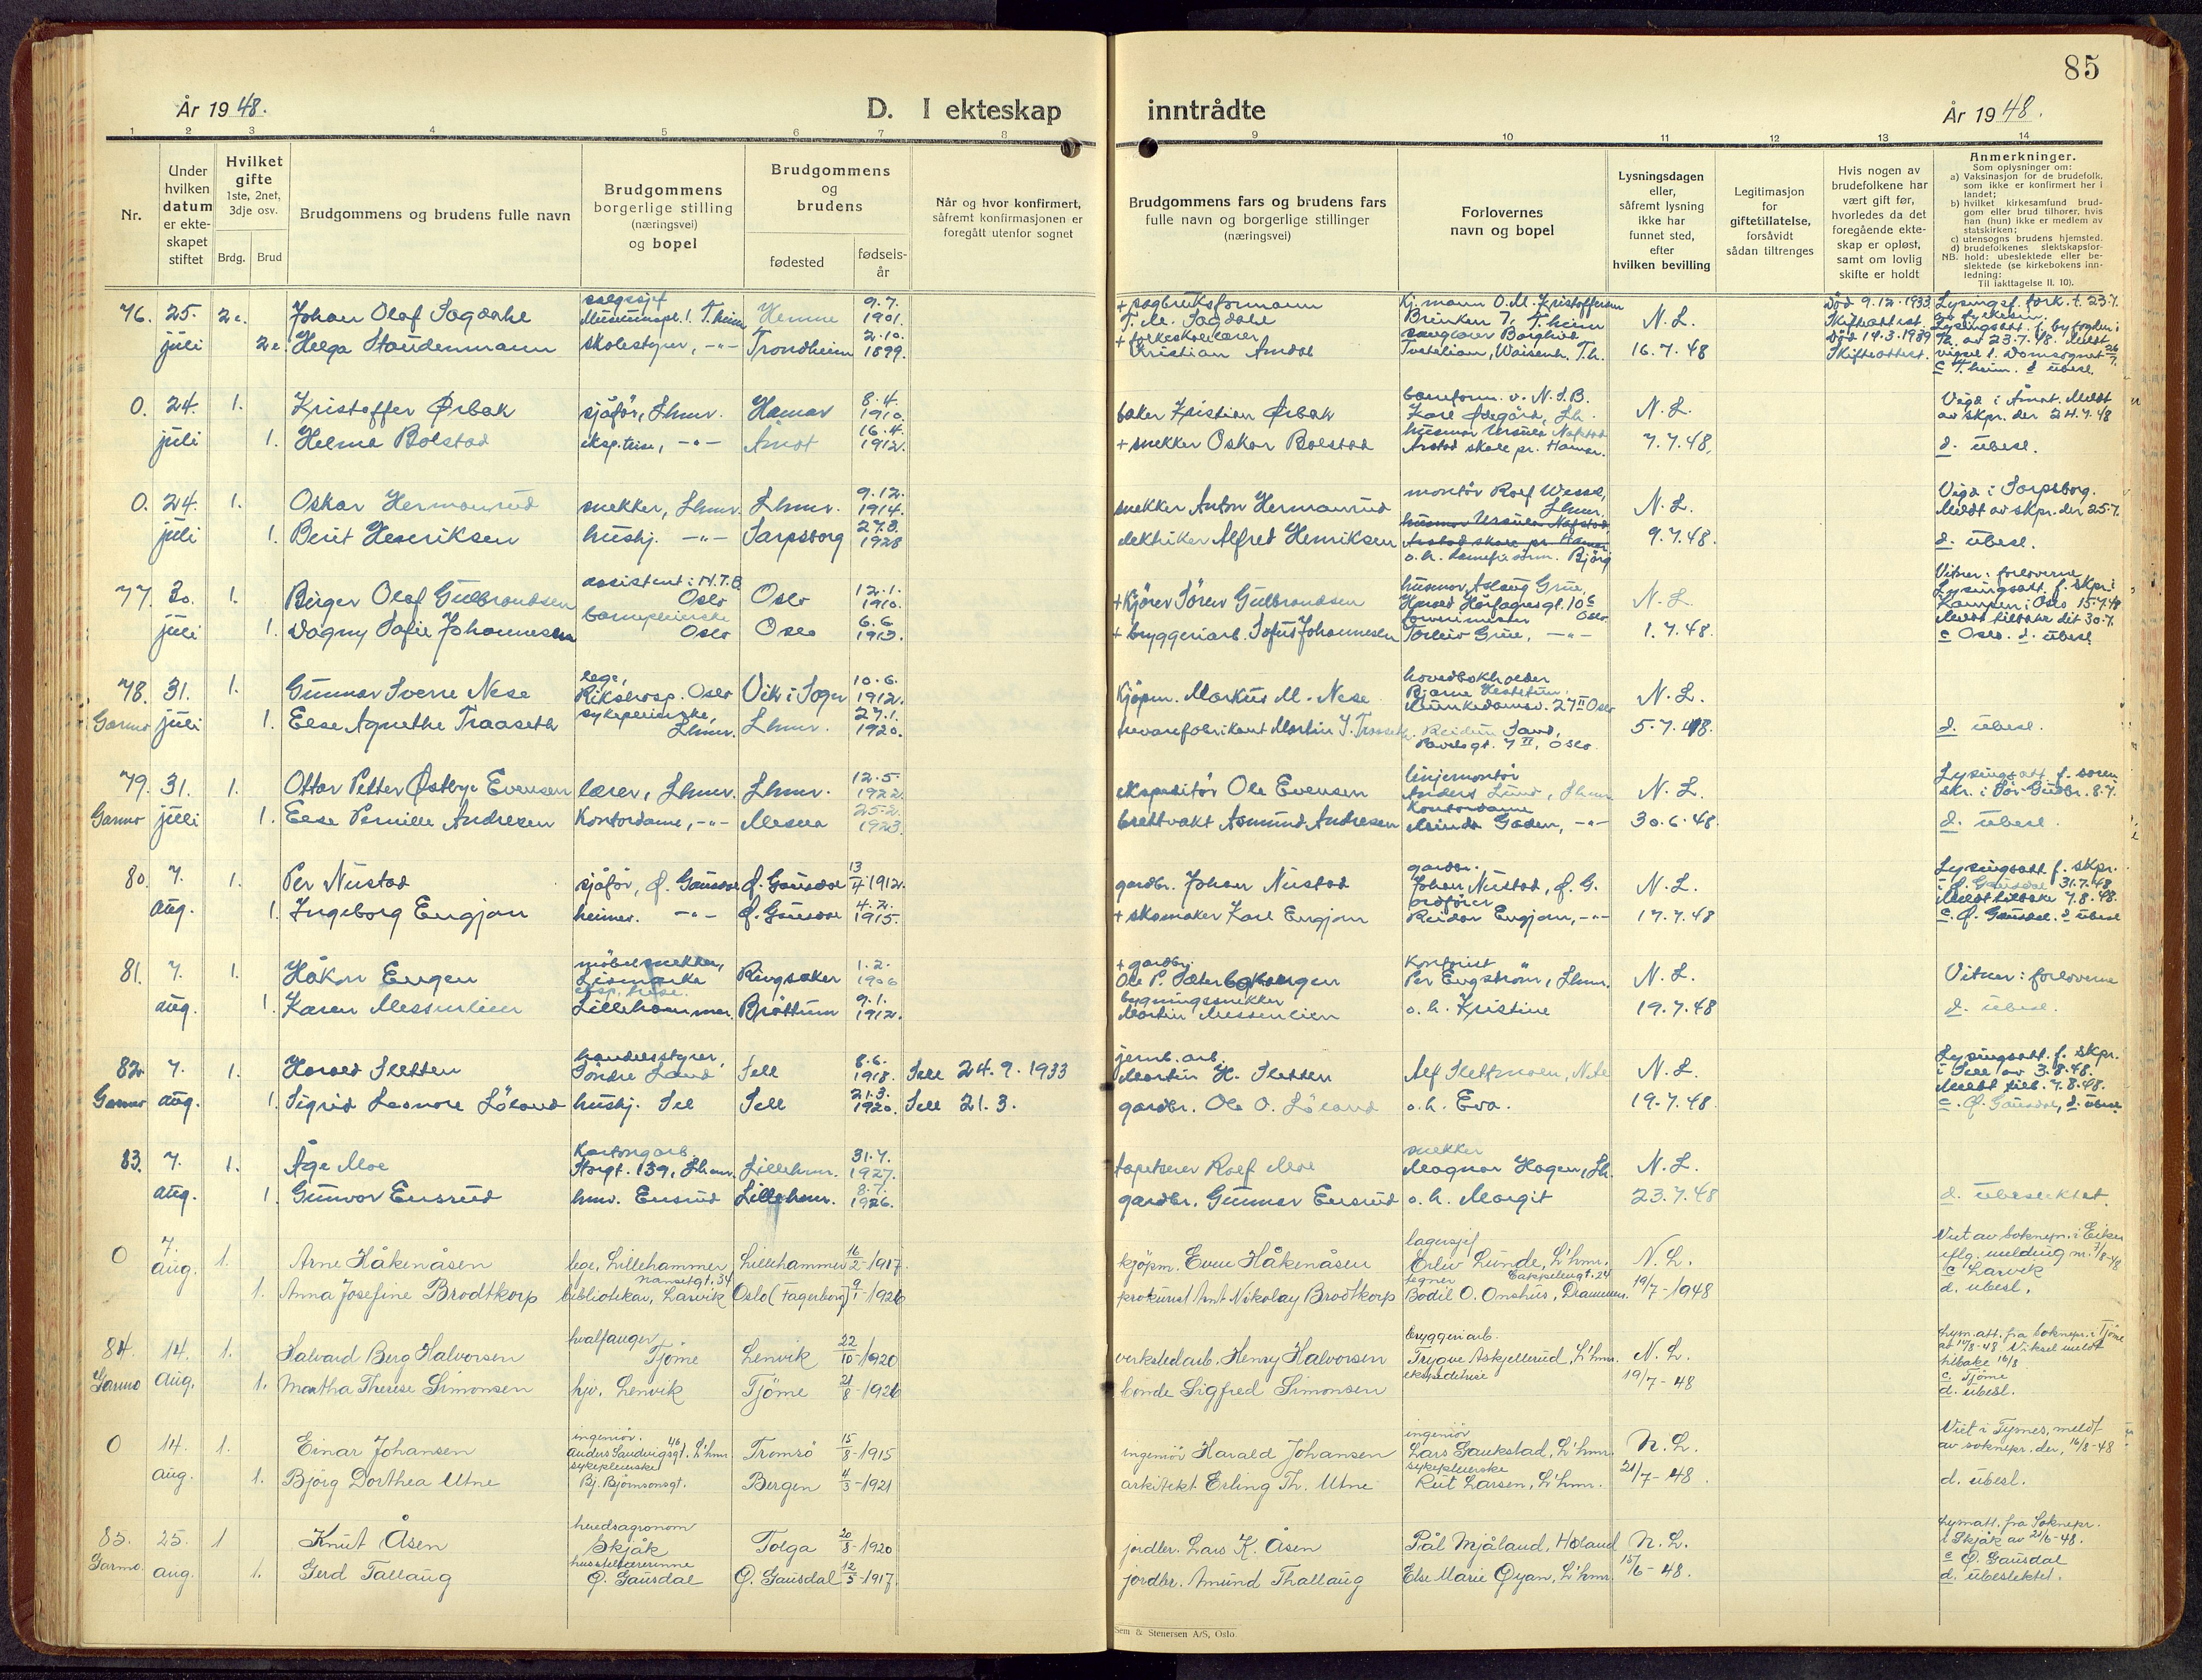 85
År 1948.
D. I ekteskap inntrådte
År 1948.
1 2 3 4 5 6 7 8 9 10 11 12 13 14
Nr.
Under hvilken datum er ekte-skapet stiftet
Hvilket gifte 1ste, 2net, 3dje osv.
Brdg. Brud
Brudgommens og brudens fulle navn
Brudgommens borgerlige stilling (næringsvei) og bopel
Brudgommens og brudens
fødested
fødsels-år
Når og hvor konfirmert, såfremt konfirmasjonen er foregått utenfor sognet
Brudgommens fars og brudens fars fulle navn og borgerlige stillinger (næringsvei)
Forlovernes navn og bopel
Lysningsdagen eller, såfremt lysning ikke har funnet sted, efter hvilken bevilling
Legitimasjon for giftetillatelse, forsåvidt sådan tiltrenges
Hvis nogen av brudefolkene har vært gift før, hvorledes da det foregående ekte-skap er opløst, samt om lovlig skifte er holdt
Anmerkninger.
Som oplysninger om:
a) Vaksinasjon for de brudefolk, som ikke er konfirmert her i landet;
b) hvilket kirkesamfund brud-gom eller brud tilhører, hvis han (hun) ikke er medlem av statskirken;
c) utensogns brudens hjemsted.
d) brudefolkenes slektskapsfor-hold: ubeslektede eller be-slektede (se kirkebokens inn-ledning:
NB.
Til iakttagelse II. 10).
76. 25. juli 2e. Johan Olaf Sagdahl salgssjef Museumspl. 1. T.heim Hemne 9.7. 1901. + sagbruksformann T. M. Sagdahl Kj.mann O.M. Kristoffersen Brinken 7, T.heim N.L. Død 9.12.1933 Skifteattest.
2e. Helga Staudenmann skolestyrer, -"- Trondheim 2.10. 1899. + folkeskolelærer Kristian Amdal 16.7.48 Død 19.3.1939 Skifteattest. c T.heim. d ubesl.
0. 24. juli 1. Kristoffer Ørbak sjåfør, Lhmr. Hamar 8.4. 1910. baker Kristian Ørbak Karl Ødegård, Lh. N.L. Vigd i Åmot. Meldt av skpr. der 24.7.48
1. Helma Bolstad eksp.trise, -"- Åmot 16.4. 1912. + snekker Oskar Bolstad husmor Ursula Nafstad Arstad skole pr. Hamar. 7.7.48. d. ubesl.
0. 24. juli 1. Oskar Hermanrud snekker, Lhmr. Lhmr. 9.12. 1914. snekker Anton Hermanrud montör Rolf Wessel, Lhmr. N.L. Vigd i Sarpsborg. Meldt av skpr. der 25.7.
1. Berit Henriksen hushj. -"- Sarpsborg 27.8. 1928 elektriker Alfred Henriksen husmor Ursula Nafstad Arstad skole pr. Hamar 9.7.48. d. ubesl.
77. 30. juli 1. Birger Olaf Gulbrandsen assistent i N.T.B. Oslo Oslo 12.1. 1910. + Kjører Sören Gulbrandsen husmor, Aslaug Grue, Harald Hårfagresgt. 10c Oslo N.L. Vitner: forloverne Lysingsatt. f. skpr. i Kampen i Oslo 15.7.48 Meldt tilbake dit 30.7.
1. Dagny Sofie Johannessen barnepleierske Oslo Oslo 6.6 1913. + bryggeriarb. Sofus Johannesen Torleiv Grue, -"- 1.7.48. c Oslo. d. ubesl.
78. Garmo 31. juli 1. Gunnar Sverre Nese lege, Rikshosp. Oslo Vik i Sogn 10.6. 1912. Kjøpm. Markus M. Nese hovedbokholder Bjarne Munkedamsv. 27 II Oslo N.L.
1. Else Agnethe Traaseth sykepleierske, Lhmr. Lhmr. 27.1. 1920. trevarefabrikant Martin J. Traaseth Reidun Sand, Pavelsgt. 7 II, Oslo. 5.7.48. d. ubesl.
79. Garmo 31. juli 1. Ottar Petter Østbye Evensen lærer, Lhmr. Lhmr. 12.5. 1922. ekspeditör Ole Evensen linjemontör Anders Lund, Lhmr N.L. Lysingsatt. f. soren skr. i Sør-Gudbr. 8.7.
1. Else Pernille Andresen Kontordame, -"- Mesna 25.2. 1923. brettvakt Asmund Andresen Kontordame Gaden, -"- 30.6.48. d. ubesl.
80. 7. aug. 1. Per Nustad sjåfør, Ø. Gausdal Ø. Gausdal 13/4 1912. gardbr. Johan Nustad gardbr. Johan Nustad, Ø.G. N.L. Lysingsatt. f. skpr. i Ø. Gausdal 31.7.48 Meldt tilbake 7.8.48.
1. Ingeborg Engjom heimev. -"- Ø. Gausdal 4.2. 1915. + skomaker Karl Engjom ordfører Reidar Engjom, -"- 17.7.48 c. Ø. Gausdal. d ubesl
81. 7. aug. 1. Håkon Engen möbelsnekker, Lismarka Ringsaker 1.2. 1906 + gardbr. Ole P. Kontorist Per Engström, Lhmr. N.L. Vitner: forloverne
1. Karen Messenlien eksp.trise. Lillehammer. Bröttum 9.1. 1912. bygningssnekker Martin Messenlien o.h. Kristine 19.7.48 d. ubesl.
82. Garmo 7. aug. 1. Harald Sletten handelsstyrer, Söndre Land Sell 8.6. 1918. Sell 24.9.1933 jernb.arb. Martin H. Sletten Alf Slettmoen, N.L. Lysingsatt. f. skpr. i Sell av 3.8.48. Meldt tilb. 7.8.48.
1. Sigrid Leonore Löland hushj. Sel Sell 21.3. 1920. Sell 21.3. gardbr. Ole O. Löland o.h. Eva. 19.7.48. c. Ø. Gausdal, d. ubesl
83. 7. aug. 1. Åge Moe Kartongarb. Storgt. 139, Lhmr. Lillehmr. 31.7. 1927. tapetserer Rolf Moe snekker Magnar Hagen, Lh. N.L.
1. Gunvor Ensrud hmv. Ensrud Lillehmr. 8.7. 1926. gardbr. Gunnar Ensrud o.h. Margit 23.7.48 d. ubeslektet
0 7. aug. 1. Arne Håkenåsen lege, Lillehammer Lillehammer 16/2-1917. kjöpm. Even Håkenåsen lagersjef Erliv Lunde, L'hmr. N.L. iflg. melding nr. 7/8-48
1. Anna Josefine Brodtkorp Nansetgt. 34 bibliotekar, Larvik Oslo (Fagerborg) 9/1-1926 prokurist Amt Nikolay Brodtkorp tegner Cappelengt. 24 Bodil O. Onshus, Drammen. 19/7-1948 c Larvik d. ubesl.
84. Garmo 14. aug. 1. Halvard Berg Halvorsen hvalfanger Tjöme Lenvik 22/10-1920 verkstedarb. Henry Halvorsen bryggeriarb. Trygve Askjellerud, L'hmr. N.L. Lysn.att. fra soknepr. i Tjöme Viksel meldt tilbake 16/8
1. Martha Therese Simonsen hjv. Lenvik Tjöme 21/8-1926 bonde Sigfred Simonsen ekspeditrise 19/7-48 c. Tjöme d. ubesl.
0 14. aug. 1. Einar Johansen ingeniör. Anders Sandvigsgt. 46 L'hmr. Tromsö 15/8-1915 ingeniör Harald Johansen ingeniör Lars Gaukstad, L'hmr. N.L. Viet i Tysnes, meldt av soknepr. der, 16/8-48
1. Björg Dorthea Utne sykepleierske Bj. Björnsonsgt. Bergen 4/3-1921 arkitekt Erling Th. Utne sykepleierske Rut Larsen, L'hmr. 21/7-48. d. ubesl.
85. Garmo. 25. aug. 1 Knut Åsen heredsagronom Skjåk Tolga 20/8-1920 jordbr. Lars K. Åsen Pål Mjåland, Holand N.L. Lysn.att. fra Soknepr. i Skjåk av 21/6-48.
1. Gerd Tallaug husstellærerinne Ø. Gausdal Ø. Gausdal 12/5-1917. jordbr. Amund Thallaug Else Marie Øyan, L'hmr 15/6-48. c Ø. Gausdal d. ubeslektet.
Sem & Stenersen A/S, Oslo.